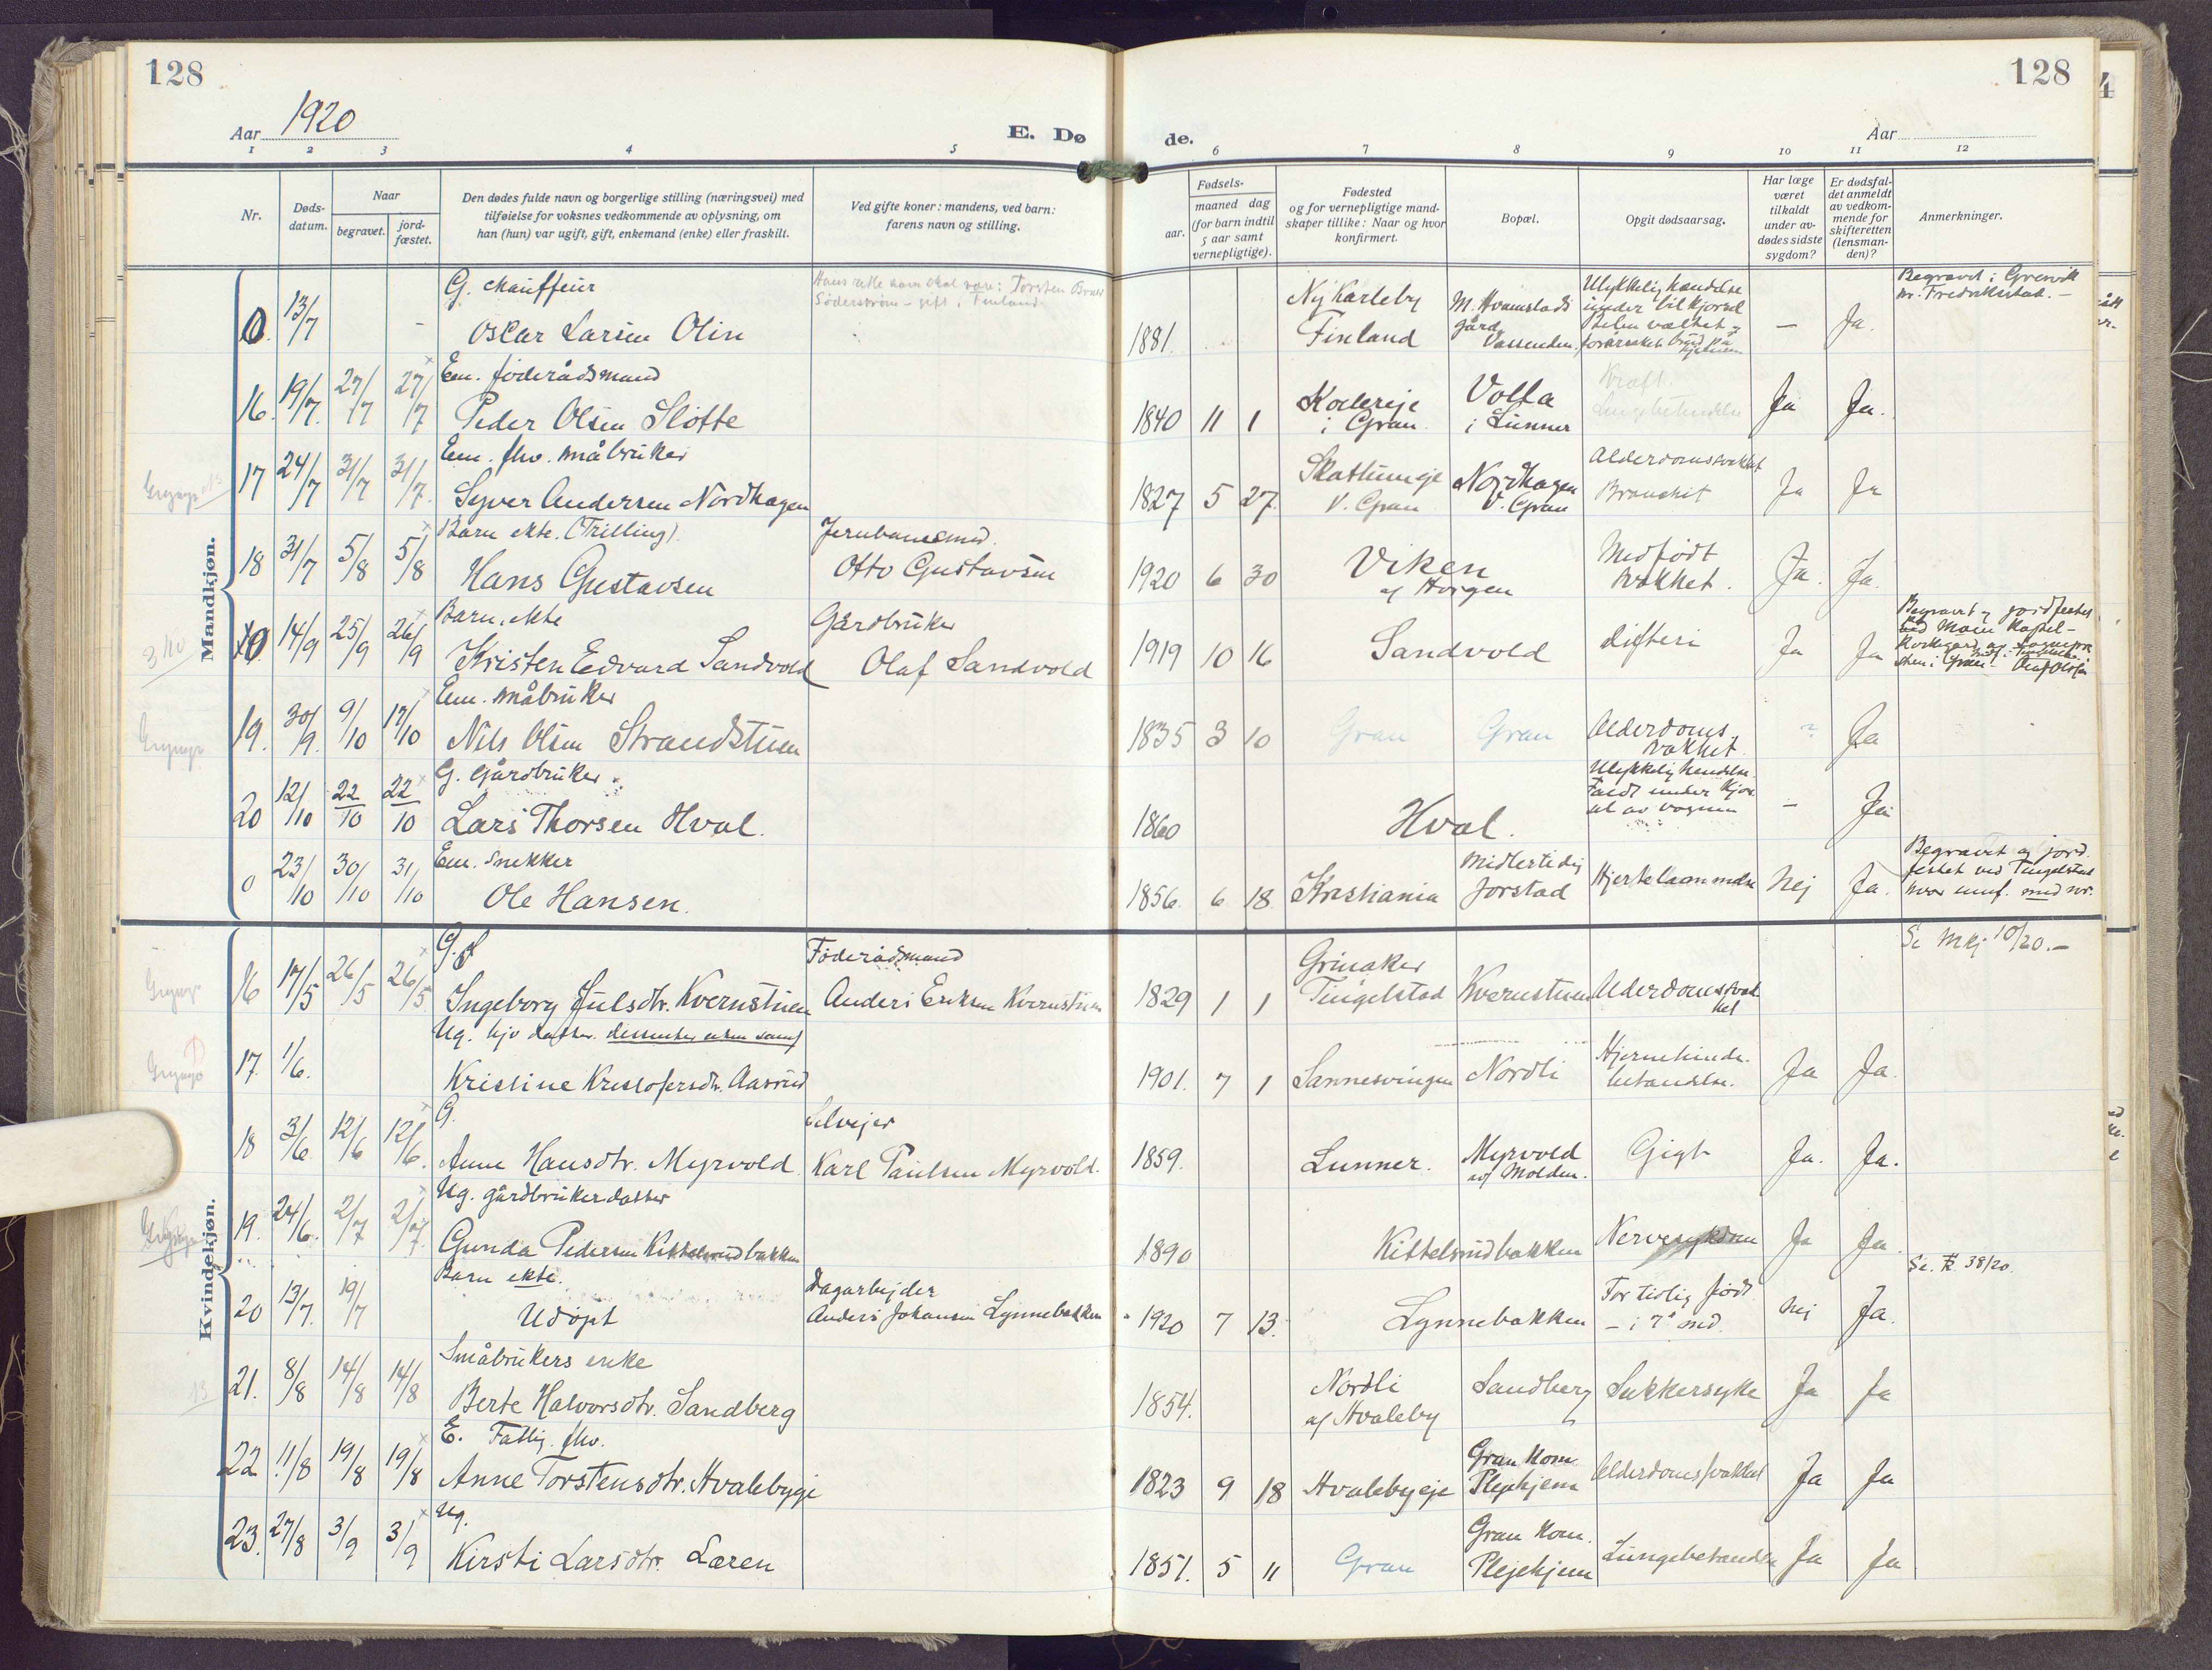 128
128
Aar 1920
E. Dø
de.
Aar
1 2 3 4 5 6 7 8 9 10 11 12
Nr.
Døds-
datum.
Naar
begravet.
jord-
fæstet.
Den dødes fulde navn og borgerlige stilling (næringsvei) med
tilføielse for voksnes vedkommende av oplysning, om
han (hun) var ugift, gift, enkemand (enke) eller fraskilt.
Ved gifte koner: mandens, ved barn:
farens navn og stilling.
Fødsels-
aar.
maaned dag
(for barn indtil
5 aar samt
vernepligtige).
Fødested
og for vernepligtige mand-
skaper tillike: Naar og hvor
konfirmert.
Bopæl.
Opgit dødsaarsag.
Har læge
været
tilkaldt
under av-
dødes sidste
sygdom?
Er dødsfal-
det anmeldt
av vedkom-
mende for
skifteretten
(lensman-
den)?
Anmerkninger.
Mandkjøn.
0. 13/7 -
G. chauffeur
Oscar Larsen Olin
Hans rette navn skal være: Torsten Bruno
Söderström - gift i Finland
1881.
Ny Karleby
Finland
M. Hvamstads
gård,
Vassenden.
Ulykkelig hændelse
under bilkjørsel
Bilen væltet og
forårsaket brud på
hjernen
- Ja.
Begravet i Gresvik
nr. Fredrikstad. -
16. 19/7. 27/7 27/7
Em. føderådsmand
Peder Olsen Slotte
1840 11 1
i Gran
Volla
i Lunner
Kræft.
Lungebetændelse
Ja Ja.
17 24/7 31/7 31/7.
Em. fhv. småbruker
Syver Andersen Nordhagen
1827 5 27.
V. Gran
Nordhagen
V. Gran
Alderdomssvakhet
Bronchit
Ja Ja
18 31/7 5/8 5/8
Barn ekte. (Trilling).
Hans Gustavsen
Jernbanemed.
Otto Gustavsen
1920 6 30
Viken
af Horgen
Medfødt
svakhet.
Ja. Ja.
0. 14/9 25/9 26/9
Barn, ekte
Kristen Edvard Sandvold
Gårdbruker
Olaf Sandvold
1919 10 16
Sandvold
difteri
Ja Ja
Begravet og jordfestet
ved Moen Kapel-
19. 30/9. 9/10 17/10
Em. småbruker
Nils Olsen Strandstuen
1835 3 10
Gran
Gran
Alderdoms-
svakhet
? Ja
20 12/10 22/10 22/10
G. Gårdbruker.
Lars Thorsen Hval.
1860
Hval.
Ulykkelig hendelse.
Faldt under kjør
sel av vognen
- Ja
0 23/10 30/10 31/10
Em. snekker
Ole Hansen.
1856. 6 18.
Kristiania
Midlertidig
Jorstad
Hjertelammelse
Nej Ja.
Begravet og jord-
festet ved Tingelstad
hvor innf. med nr.
Kvindekjøn.
16 17/5 26/5 26/5
G.
Ingeborg Julsdtr. Kvernstuen
Føderådsmand
Anders Eriksen Kvernstuen
1829 1 1
Grinaker
Tingelstad
Kvernstuen
Alderdomssvak
het
Se Mkj 10/20.-
17. 1/6.
Kristine Kristofersdtr. Aasrud
1901. 7 1
Sannesvingen
Nordli
Hjernehinde-
betændelse.
Ja Ja.
18 3/6. 12/6 12/6.
G.
Anne Hansdtr. Myrvold.
Selvejer
Karl Paulsen Myrvold.
1859.
Lunner.
Myrvold
af Molden.
Gigt
Ja. Ja.
19. 24/6. 2/7 2/7.
Ug. gårdbrukerdatter
Gunda Pedersen Kittelsrudbakken
1890
Kittelsrudbakken
Nervesykdom
Ja Ja.
20 13/7. 19/7
Barn ekte.
Udøpt
Dagarbejder
Anders Johansen Lynnebakken
1920 7 13.
Lynnebakken
For tidlig født
- i 7de md.
Nej Ja.
Se. 38/20.
21. 8/8 14/8 14/8
Småbrukers enke
Berte Halvorsdtr. Sandberg
1854.
Nordli
af Hvaleby
Sandberg
Sukkersyke
Ja Ja
22 11/8 19/8 19/8
E. Fattig. fhv.
Anne Torstensdtr. Hvalebyeje
1823 9 18
Hvalebyeje
Gran kom.
Plejehjem
Alderdomssvakhet
Ja Ja
23. 27/8 3/9 3/9
Ug.
Kirsti Larsdtr. Læren
1851. 5 11
Gran
Gran kom.
Plejehjem
Lungebetændelse
Ja Ja